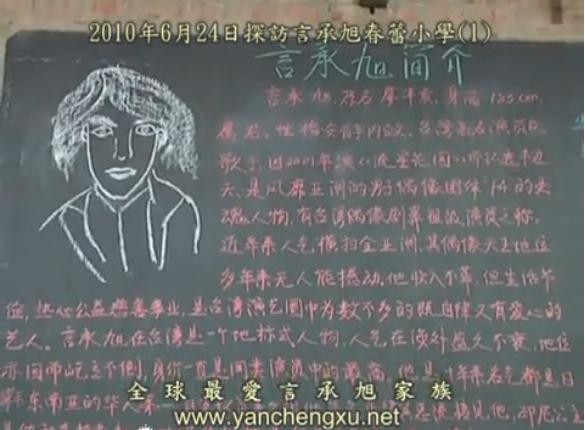 2010年6月24日探訪言承旭春蕾小學(1)
言承旭简介
言承旭,原名廖洋震,身高 185cm,
属龙,性格安静内敛。台湾著名演员及
歌手,因2001年演《流星花园》而认
天,是风靡亚洲的男子偶像团体 F4的灵
魂人物,有台湾偶像剧鼻祖级演员之称。
近年来人气横扫全亚洲,其偶像天王地位
多年来无人能撼动,他收入不算,但生活节
俭,热心公益慈善事业,是台湾演艺圈中为数不多的既自律又有爱心的
艺人。言承旭在台湾是一个地标式人物,人气在海外益久不衰,地位
亦因而屹立不倒,身价一直是同类演员中的最高。他是十年来名气都是日
韩东南亚的华人第一
总统接见他,印尼公主
全球最愛言承旭家族
www.yanchengxu.net